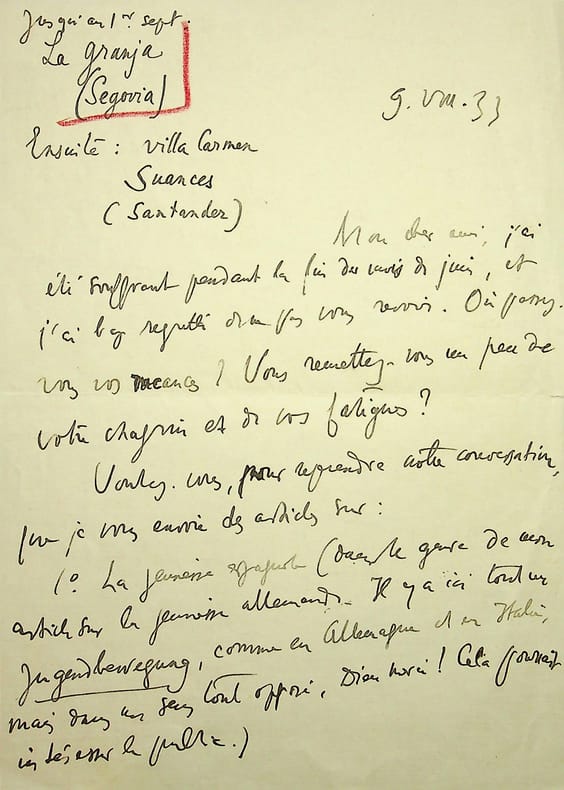 Jusqu'au 1er sept.
La Granja
(Segovia)
9. VIII. 33
Ensuite : villa Carmen
Suances
(Santander)
Mon cher ami, j'ai
été souffrant pendant la fin du mois de juin, et
j'ai bcp regretté de ne pas vous revoir. Où passez-
vous vos vacances ? Vous remettez-vous un peu de
votre chagrin et de vos fatigues ?
Voulez-vous, pour reprendre notre conversation,
que je vous envoie des articles sur :
1º La jeunesse espagnole (dans le genre de mon
article sur la jeunesse allemande. Il y a ici tout un
Jugendbewegung, comme en Allemagne et en Italie,
mais dans un sens tout opposé, Dieu merci ! Cela pourrait
intéresser le public.)